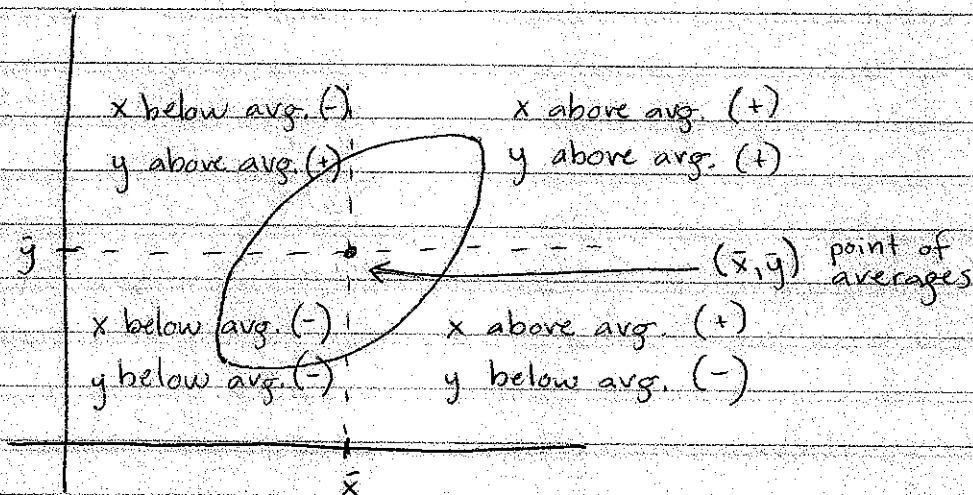 x below avg. (-) x above avg. (+)
y above avg. (+) y above avg. (+)
ȳ
(x̄, ȳ) point of
averages
x below avg. (-) x above avg. (+)
y below avg. (-) y below avg. (-)
x̄